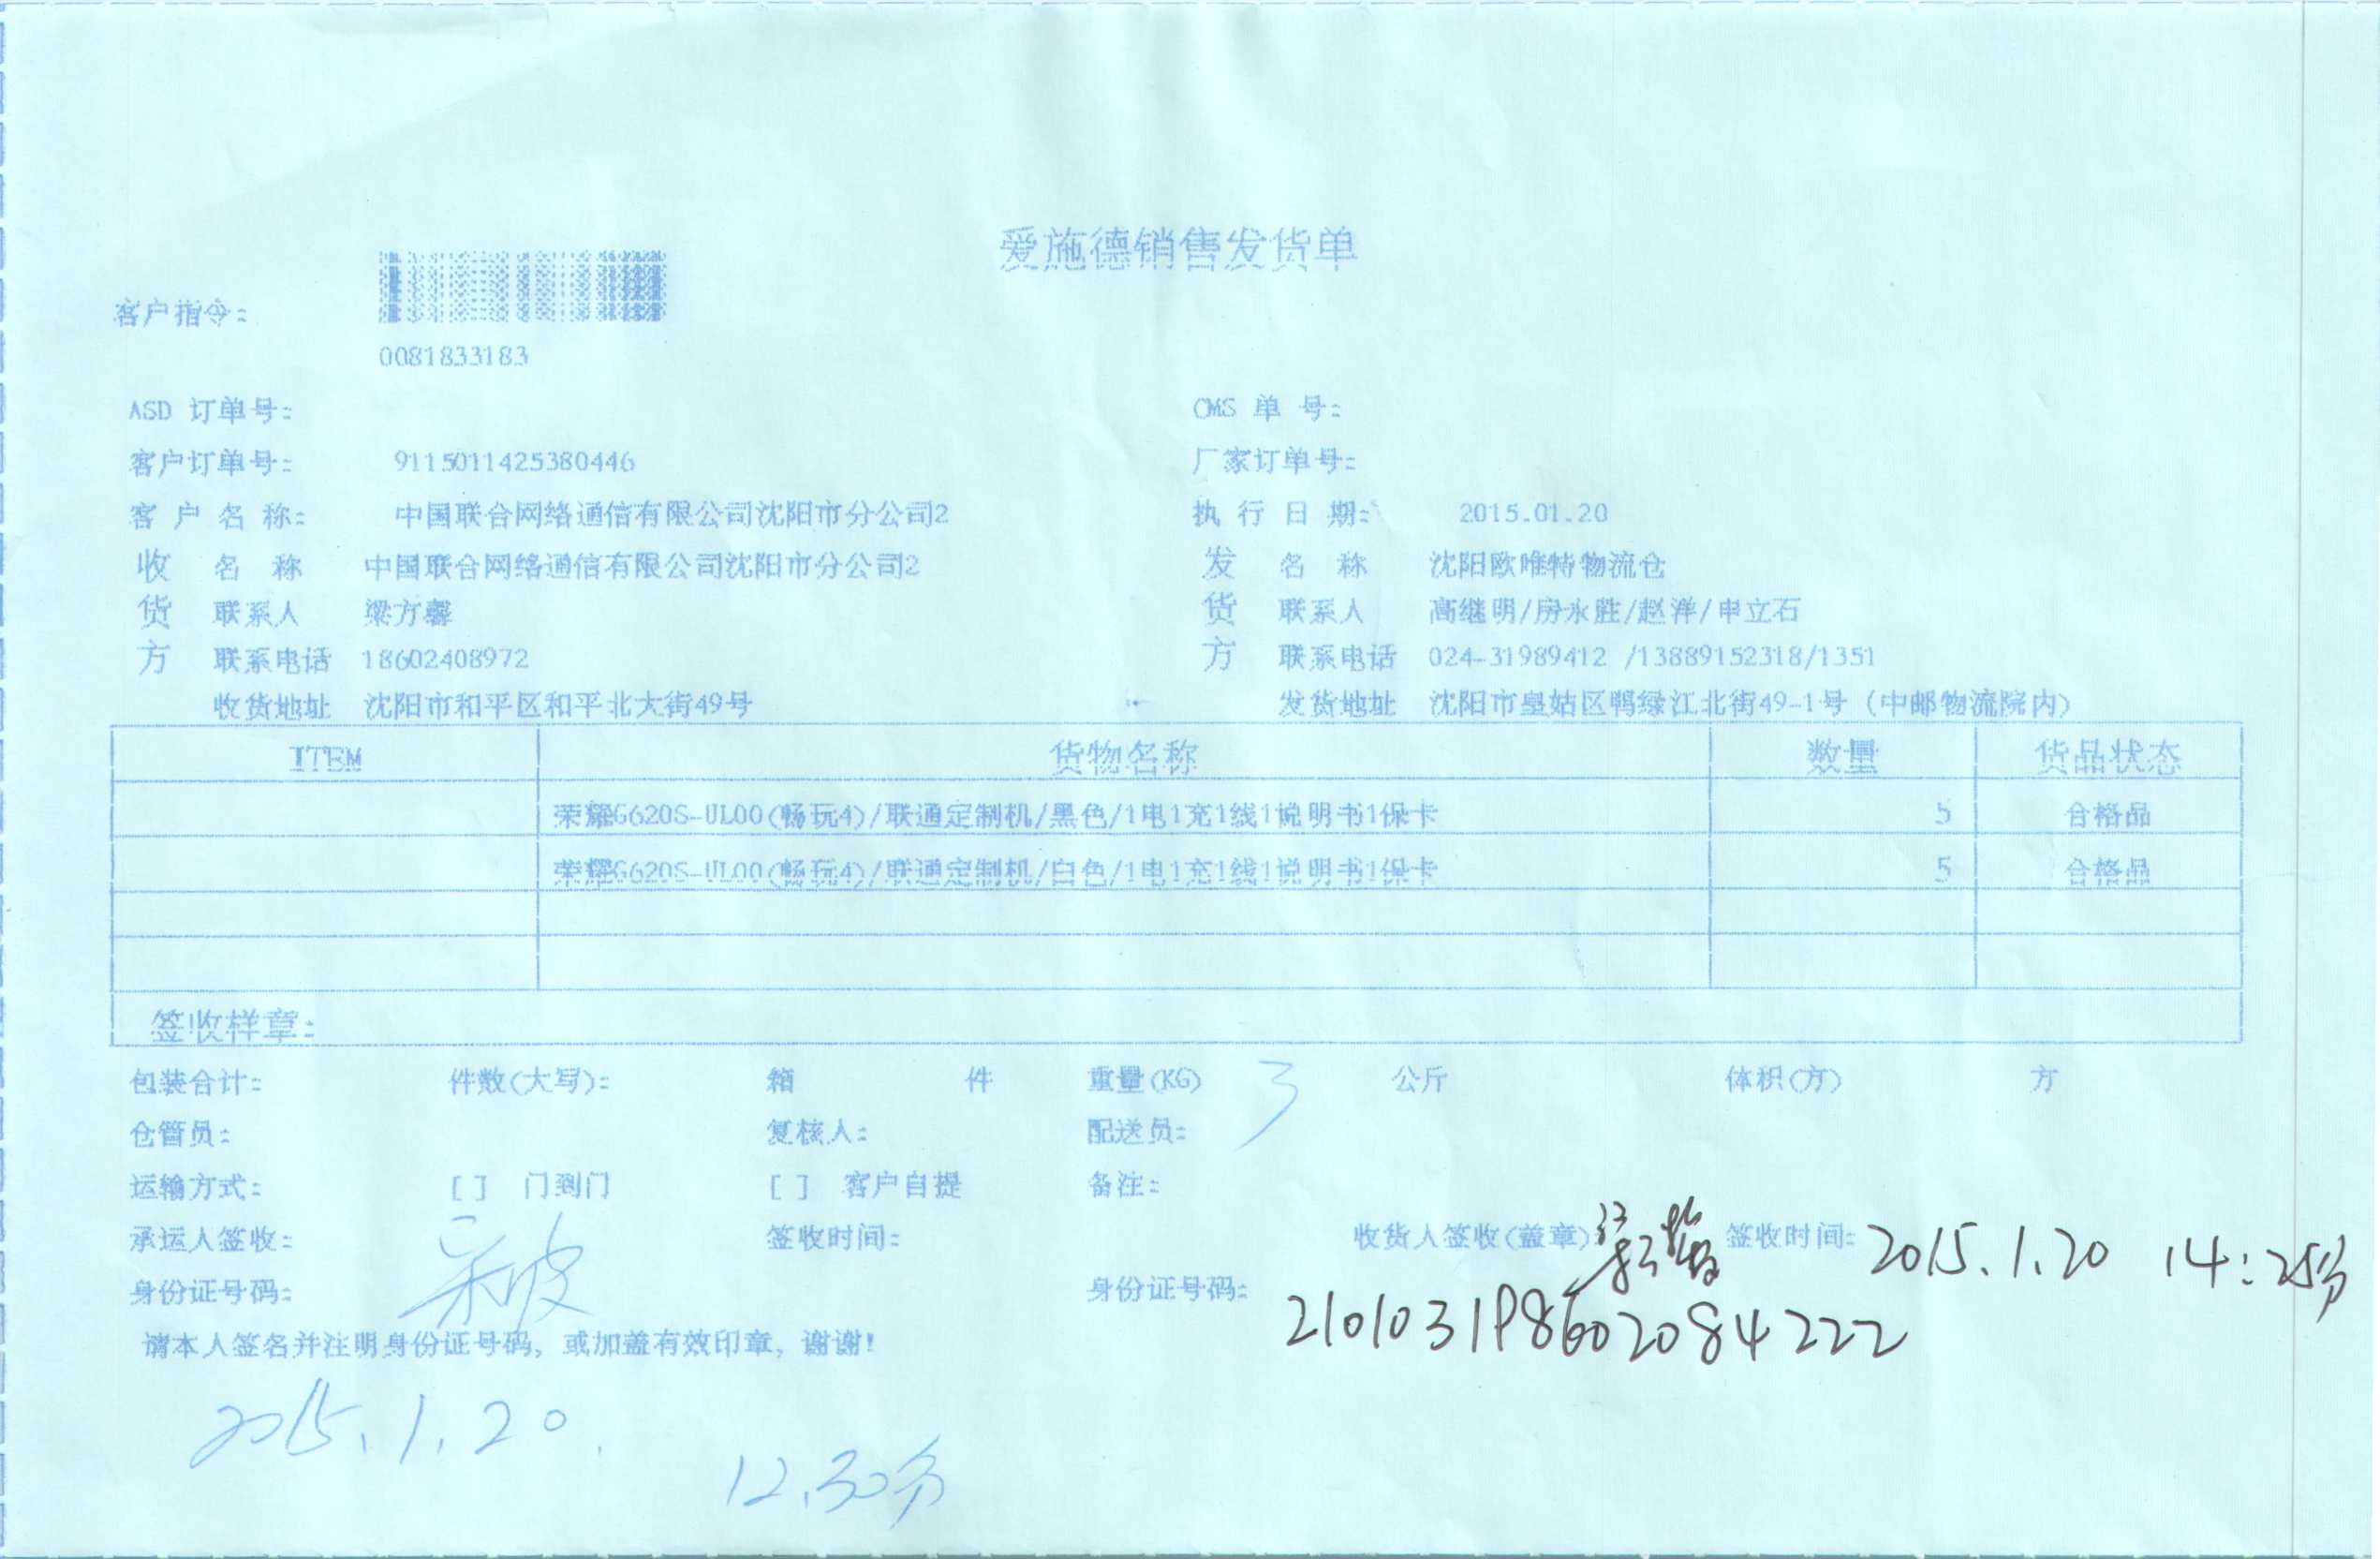 爱施德销售发货单
客户指令:
0081833183
ASD 订单号: CMS 单 号:
客户订单号: 9115011425380446 厂家订单号:
客户名称: 中国联合网络通信有限公司沈阳市分公司2 执行日期: 2015.01.20
收 名 称 中国联合网络通信有限公司沈阳市分公司2 发 名 称 沈阳欧唯特物流仓
货 联系人 梁方馨 货 联系人 高继明/房永胜/赵洋/申立石
方 联系电话 18602408972 方 联系电话 024-31989412 /13889152318/1351
收货地址 沈阳市和平区和平北大街49号 发货地址 沈阳市皇姑区鸭绿江北街49-1号 (中邮物流院内)
ITEM 货物名称 数量 货品状态
荣耀G620S-UL00(畅玩4)/联通定制机/黑色/1电1充1线1说明书1保卡 5 合格品
荣耀G620S-UL00(畅玩4)/联通定制机/白色/1电1充1线1说明书1保卡 5 合格品
签收样章:
包装合计: 件数(大写): 箱 件 重量(KG) 3 公斤 体积(方) 方
仓管员: 复核人: 配送员:
运输方式: [ ] 门到门 [ ] 客户自提 备注:
承运人签收: 签收时间: 收货人签收(盖章): 签收时间: 2015.1.20 14:25分
身份证号码: 身份证号码: 210103198602084222
请本人签名并注明身份证号码，或加盖有效印章，谢谢!
2015.1.20.
12.30分